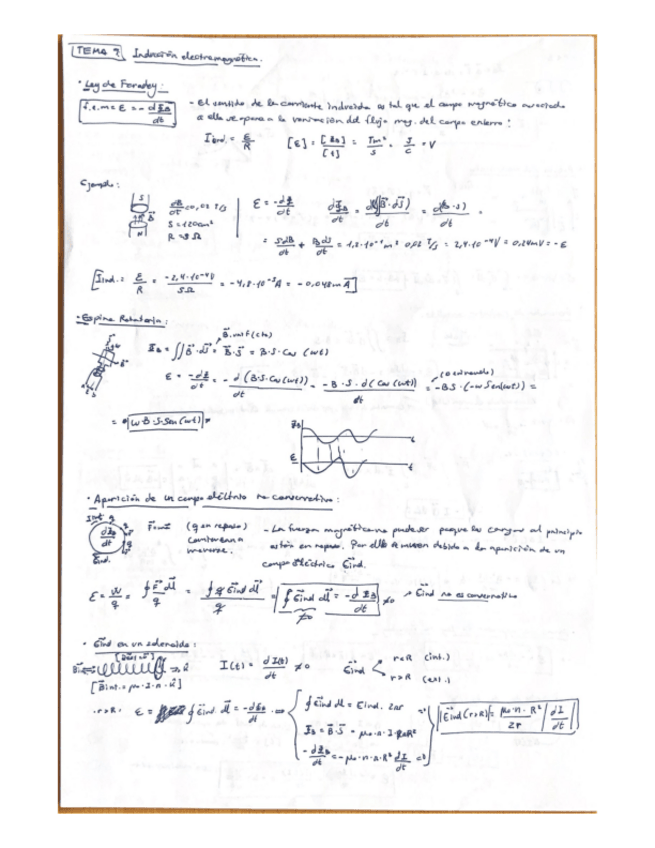 TEMA 7 Inducción electromagnética.
· Ley de Faraday:
f.e.m = ε = - dΦB/dt
- El sentido de la corriente inducida es tal que el campo magnético asociado
a ella se opone a la variación del flujo mag. del campo externo:
Iind. = ε/R
Ejemplo:
S
N
dB/dt = 0,02 T/s
S = 120cm²
[Iind. = ε/R = -2,4·10⁻⁴V/5Ω = -4,8·10⁻⁵A = -0,048mA]
· Espira Rotatoria:
B unif (cte)
ΦB = ∬B·dS = B·S = B·S·Cos (wt)
ε = -dΦ/dt = - d(B·S·Cos(wt))/dt = -B·S·d(Cos(wt))/dt = -BS·(-wSen(wt)) =
= w·B·S·Sen(wt)
ΦB
t
ε
t
· Aparición de un campo eléctrico no conservativo:
(q en reposo)
comienzan a
moverse.
- La fuerza magnética no puede ser porque las cargas al principio
están en reposo. Por ello se mueven debido a la aparición de un
campo eléctrico Eind.
ε = W/q = ∮F·dl/q = ∮q Eind dl/q = ∮Eind dl = -dΦB/dt ≠0 → Eind no es conservativo
· Eind en un solenoide:
[Bint = μ0·I·n·u]
I(t) = dI(t)/dt ≠0
Eind
r<R (int.)
r>R (ext.)
· r>R · ε = ∮Eind. dl = -dΦB/dt ⇒
∮Eind dl = Eind. 2πr
ΦB = B·S = μ0·n·I·πR²
-dΦB/dt = -μ0·n·π·R² dI/dt
|Eind(r>R)| = μ0·n·R²/2r |dI/dt|